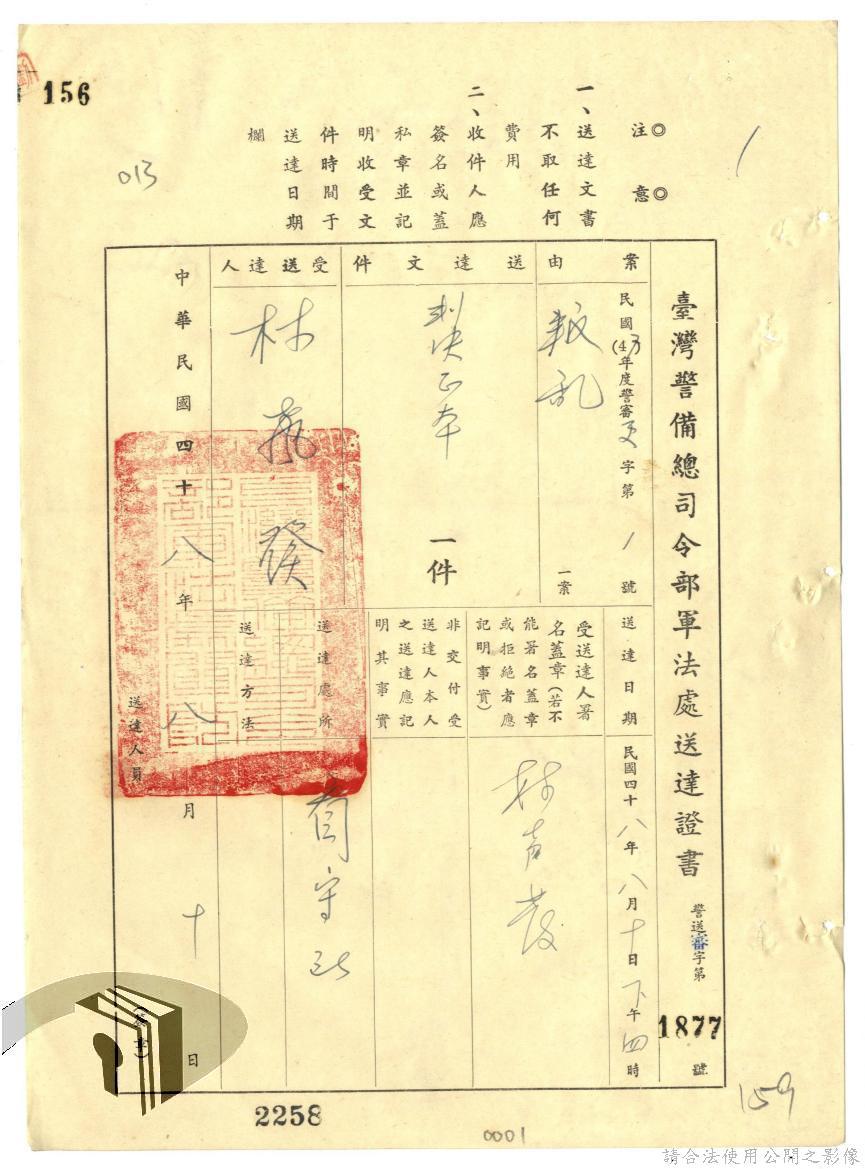 156
013
◎注意◎
一、送達文書
不取任何
費用
二、收件人應
簽名或蓋
私章並記
明收受文
件時間于
送達日期
欄
臺灣警備總司令部軍法處送達證書
警送審字第
1877
號
案由
民國(47)年度警審更字第1號
叛乱
一案
送達文件
判決正本
一件
受送達人
林
發
送達日期
民國四十八年八月十日下午四時
受送達人署
名蓋章(若不
能署名蓋章
或拒絕者應
記明事實)
林声發
非交付受
送達人本人
之送達應記
明其事實
送達處所
看守所
送達方法
中華民國四十八年八月十日
送達人員
(蓋章)
2258
0001
159
請合法使用公開之影像